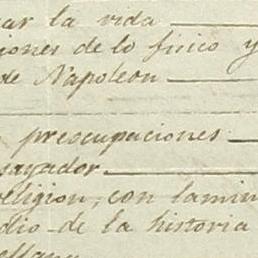 car la vida
ciones de lo fisico y
de Napoleon
preocupaciones
sayador.
religion, con lamin
dio de la historia